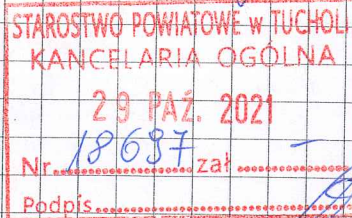 STAROSTWO POWIATOWE w TUCHOLI
KANCELARIA OGÓLNA
29 PAŹ. 2021
Nr. 18697 zał. –
Podpis